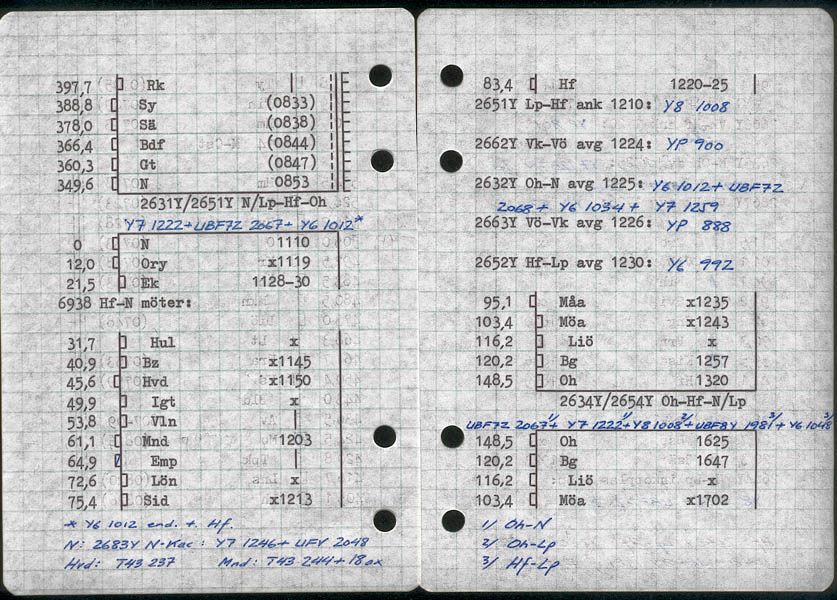 397,7 Rk |
388,8 Sy (0833)
378,0 Sä (0838)
366,4 Bdf (0844)
360,3 Gt (0847)
349,6 N 0853
2631Y/2651Y N/Lp-Hf-Oh
Y7 1222+UBF7Z 2067+ Y6 1012*
0 N 1110
12,0 Ory x1119
21,5 Ek 1128-30
6938 Hf-N möter:
31,7 Hul x
40,9 Bz x1145
45,6 Hvd x1150
49,9 Igt x
53,8 Vln |
61,1 Mnd 1203
64,9 Emp |
72,6 Lön x
75,4 Sid x1213
* Y6 1012 end. t. Hf.
N: 2683Y N-Kac: Y7 1246+UFV 2048
Hvd: T43 237 Mnd: T43 244+18 ax
83,4 Hf 1220-25
2651Y Lp-Hf ank 1210: Y8 1008
2662Y Vk-Vö avg 1224: YP 900
2632Y Oh-N avg 1225: Y6 1012+UBF7Z
2068+ Y6 1034+ Y7 1259
2663Y Vö-Vk avg 1226: YP 888
2652Y Hf-Lp avg 1230: Y6 992
95,1 Måa x1235
103,4 Möa x1243
116,2 Liö x
120,2 Bg 1257
148,5 Oh 1320
2634Y/2654Y Oh-Hf-N/Lp
UBF7Z 2067 1/+ Y7 1222 1/+Y8 1008 3/+UBF8Y 1981 3/+ Y6 1048 3/
148,5 Oh 1625
120,2 Bg 1647
116,2 Liö x
103,4 Möa x1702
1/ Oh-N
2/ Oh-Lp
3/ Hf-Lp